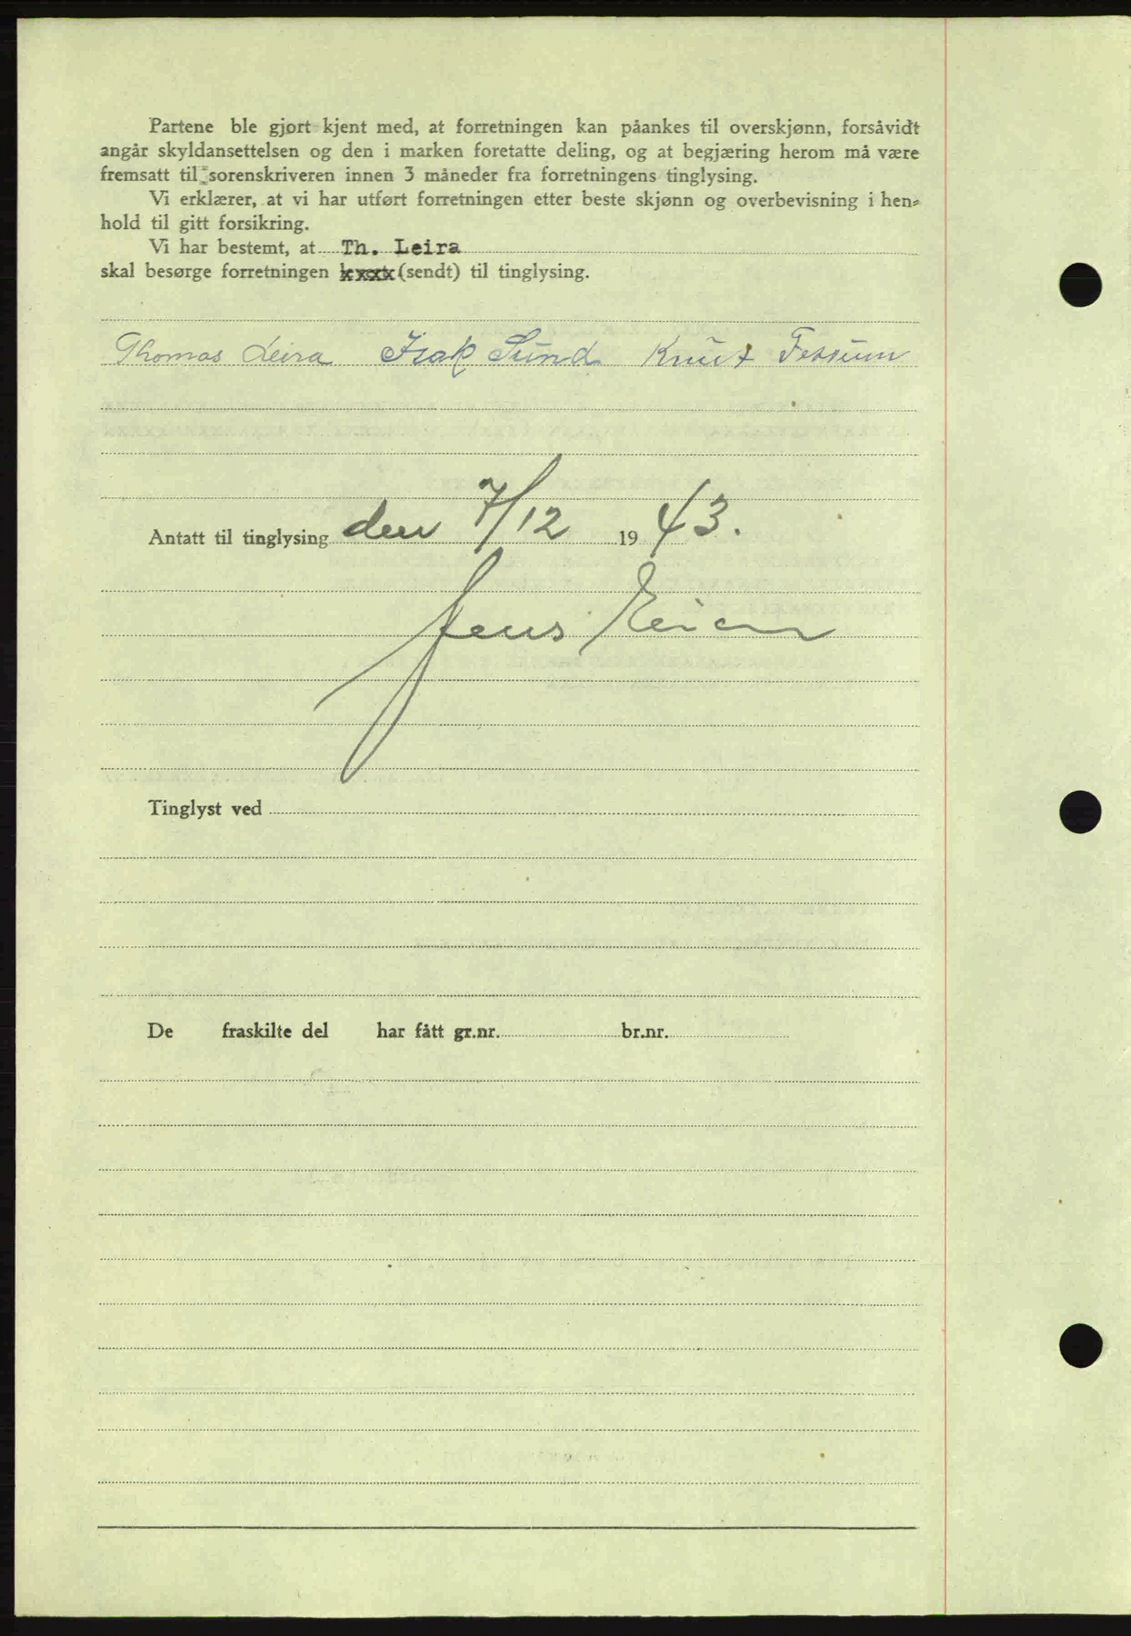 Partene ble gjort kjent med, at forretningen kan påankes til overskjønn, forsåvidt
angår skyldansettelsen og den i marken foretatte deling, og at begjæring herom må være
fremsatt til sorenskriveren innen 3 måneder fra forretningens tinglysing.
Vi erklærer, at vi har utført forretningen etter beste skjønn og overbevisning i hen-
hold til gitt forsikring.
Vi har bestemt, at Th. Leira
skal besørge forretningen (sendt) til tinglysing.
Thomas Leira Isak Sund Knut
Antatt til tinglysing den 7/12 1943.
Jens
Tinglyst ved
De fraskilte del har fått gr.nr. br.nr.